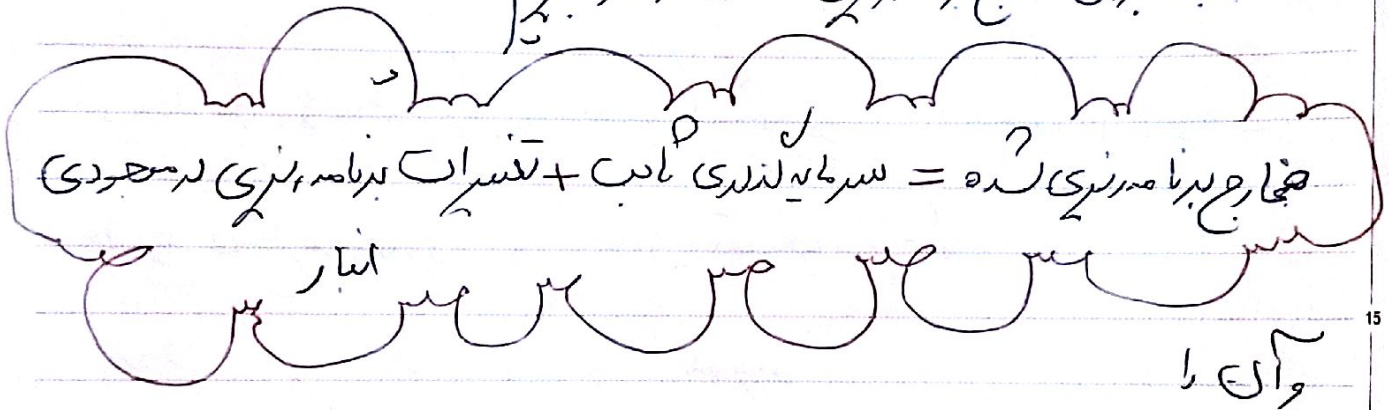 مخارج برنامه ریزی شده = سرمایه گذاری ثابت + تغییرات برنامه ریزی در موجودی
انبار
15
و آن را